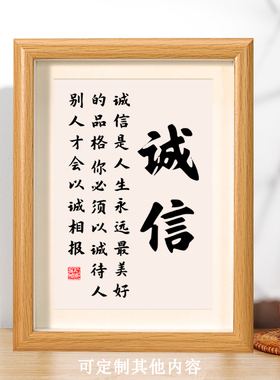 诚信
诚信是人生永远最美好
的品格你必须以诚待人
别人才会以诚相报
可定制其他内容